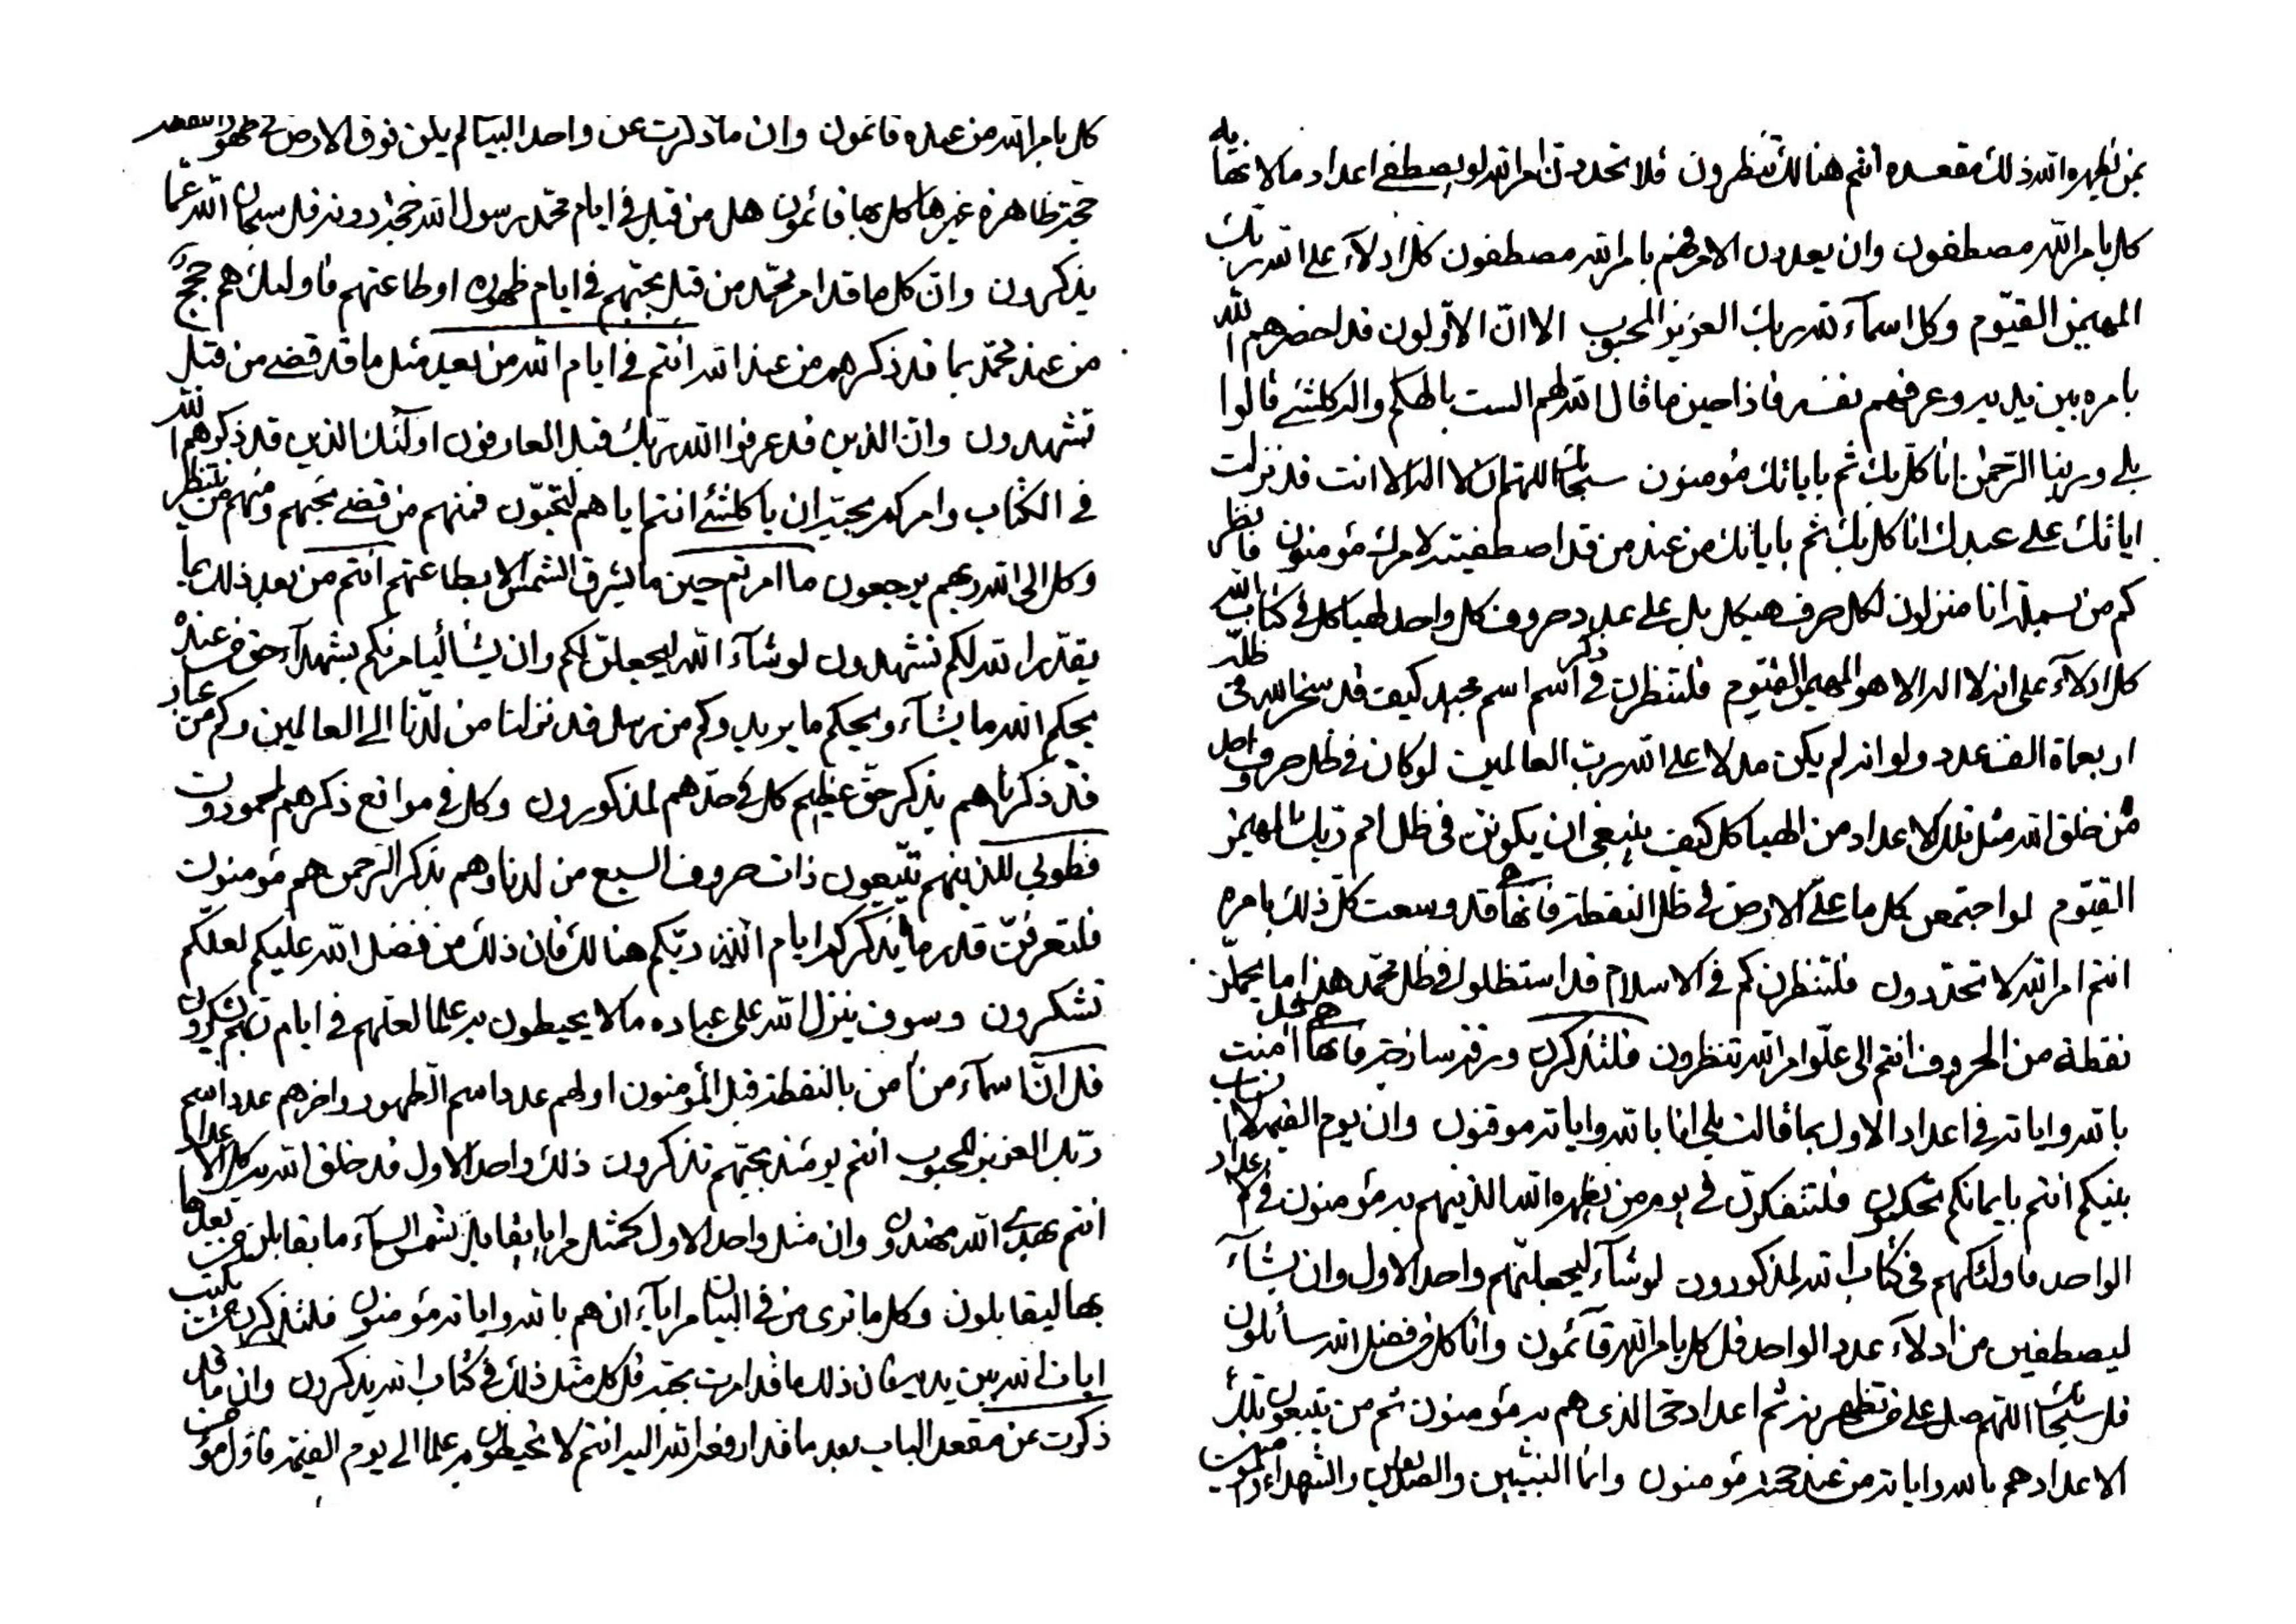 بمن يظهره الله ذلك مقعده انتم هنالك تنظرون فلا تحددن امر الله لو يصطفى اعداد مالا نهاية
كل بامر الله مصطفون وان يعدلن الامر فهم بامر الله مصطفون كل ادلآء على الله ربك
المهيمن القيّوم وكل اسمآء لله ربك العزيز المحبوب الا انّ الاوّلون قد احضرهم الله
بامره بين يديه وعرفهم نفسه فاذا حين ما قال الله لهم الست بالهكم واله كلشئ قالوا
بلى وربنا الرّحمن انا كلّ بك ثم باياتك مؤمنون سبحانك اللهم ان لا اله الا انت قد نزلت
اياتك على عبدك انا كل بك ثم باياتك من عند من قد اصطفيته لامرك مؤمنون فانظر
كم من بسملة انا منزلون لكل حرف هيكل بل على عدد حروف كل واحد لهياكل فى كتاب الله
كل ادلآء على انه لا اله الا هو المهيمن القيوم فلتنظرن فى ذكر اسم اسم مجيد كيف قد سخر الله فى ظلّه
اربعماة الف عدد ولو انه لم يكن مدلا على الله رب العالمين لو كان فى ظل حروف واحد
من خلق الله مثل تلك الاعداد من الهياكل كيف ينبغى ان يكونن فى ظل اسم ربك المهيمن
القيّوم لو اجتمعن كل ما على الارض فى ظل النقطة فانها قد وسعت كلّ ذلك بامره
انتم امر الله لا تحددون فلتنظرن كم فى الاسلام قد استظلوا فى ظل محمّد هذا ما يحملن
نقطة من الحروف انتم الى علّو امر الله تنظرون فلتذكرن ورقة ساذجة فانها امنت
بالله واياته فى اعداد الاول بما قالت بلى انا بالله واياته موقنون وان يوم القيمة لا انساب
بينكم انتم بايمانكم تحكمون فلتتفكرنّ فى يوم من يظهره الله الذينهم به مؤمنون فى اعداد
الواحد فاولئكهم فى كتاب الله لمذكورون لو شآء ليجعلنّهم واحد الاول وان يشآء
ليصطفين من ادلآء عدد الواحد قل كل بامر الله قآئمون وانا كل من فضل الله سائلون
قل سبحانك اللهم صل على من تظهرنه ثم اعداد حى الذى هم به مؤمنون ثم من يتبعون تلك
الاعداد هم بالله واياته من عند حجته مؤمنون وانما النبيّين والصديقين والشهداء
كل بامر الله من عنده قائمون وان ما ذكرت عن واحد البيان لم يكن فوق الارض فى ظهور النقطة
حجة ظاهرة غيرها كل بها قائمون هل من قبل فى ايام محمد رسول الله حجة دونه قل سبحان الله عمّا
يذكرون وان كل ما قد امر محمّد من قبل بحبّهم فى ايام ظهوره او طاعتهم فاولئك هم حجج
من عند محمّد بما قد ذكرهم من عند الله انتم فى ايام الله من بعد مثل ما قد قضى من قبل
تشهدون وان الذين قد عرفوا الله ربّك قبل العارفون اولئك الذين قد ذكرهم الله
فى الكتاب وامركم بحبّه ان يا كلشئ انتم اياهم لتحبّون فمنهم من قضى نحبهم ومنهم من ينتظر
وكل الى الله ربهم يرجعون ما امرتم حين ما يشرق الشمس الا بطاعتهم انتم من بعد ذلك بما
يقدّر الله لكم تشهدون لو شآء الله ليجعلنّ لكم وان يشأ ليامرنكم بشهدآء حق من عنده
يحكم الله ما يشآء ويحكم ما يريد وكم من رسل قد نزلنا من لدنا الى العالمين وكم من عباد
قد ذكرناهم بذكر حقّ عظيم كل فى حدّهم لمذكورون وكل فى مواقع ذكرهم لمحمودون
فطوبى للذينهم يتّبعون ذات حروف السبع من لدنا وهم بذكر الرّحمن هم مؤمنون
فلتعرفنّ قدر ما يذكركم ايام الله ربّكم هنالك فان ذلك من فضل الله عليكم لعلّكم
تشكرون وسوف ينزل الله على عباده ما لا يحيطون به علما لعلهم فى ايام ربهم يشكرون
قل انّ اسمآء من امن بالنقطة قبل المؤمنون اولهم عدد اسم الظهور واخرهم عدد اسم
ربّك العزيز المحبوب انتم يومئذ بحبّهم تذكرون ذلك واحد الاول قد خلق الله به كل الاعداد
انتم بهدى الله مهتدون وان مثل واحد الاول كمثل مرايا يقابلن شمس السمآء ما يقابلن من بعدها
بها ليقابلون وكل ما ترى من فى البيان مرايآء ان هم بالله واياته مؤمنون فلتذكرن من يكتب
ايات الله بين يديه فان ذلك ما قد امرت بحبّه قل كل مثل ذلك فى كتاب الله يذكرون وان ما قد
ذكرت عن مقعد الباب بعد ما قد ارفعه الله اليه انتم لا تحيطون به علما الى يوم القيمة فاول مؤمن